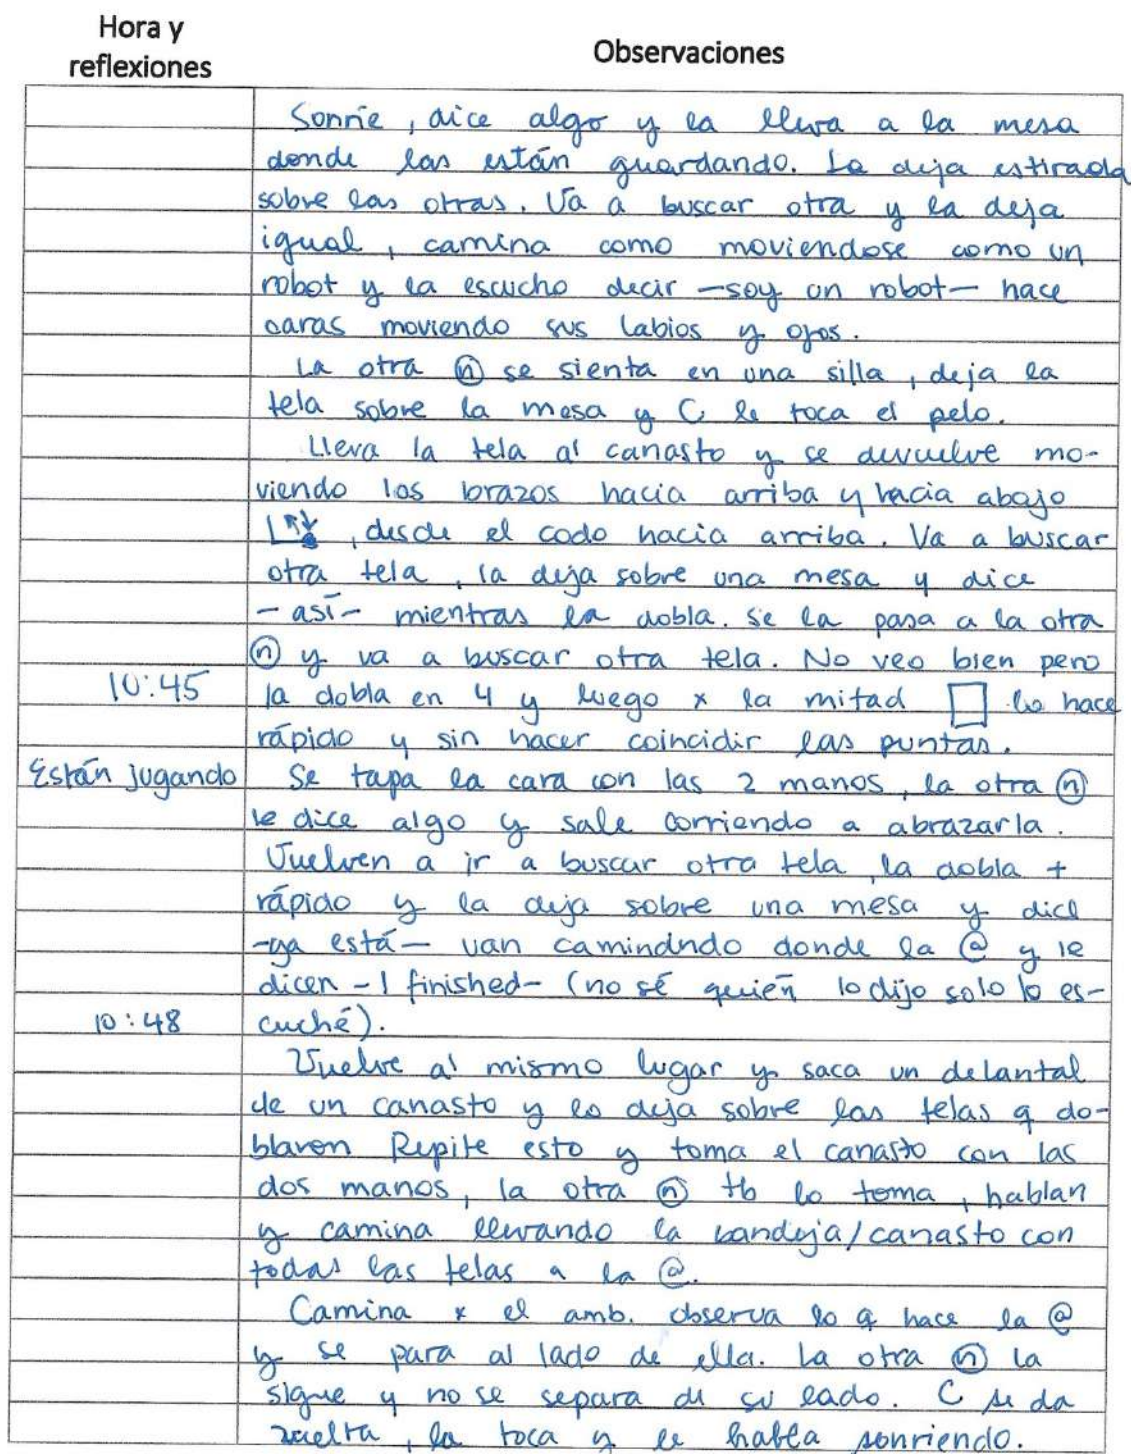 Hora y
reflexiones
Observaciones
Sonríe, dice algo y la lleva a la mesa
donde las están guardando. La deja estirada
sobre las otras. Va a buscar otra y la deja
igual, camina como moviendose como un
robot y la escucho decir -soy un robot- hace
caras moviendo sus labios y ojos.
La otra ⓝ se sienta en una silla, deja la
tela sobre la mesa y C le toca el pelo.
Lleva la tela al canasto y se devuelve mo-
viendo los brazos hacia arriba y hacia abajo
, desde el codo hacia arriba. Va a buscar
otra tela, la deja sobre una mesa y dice
- así - mientras la dobla. Se la pasa a la otra
ⓝ y va a buscar otra tela. No veo bien pero
10:45 la dobla en 4 y luego x la mitad lo hace
rápido y sin hacer coincidir las puntas.
Están jugando Se tapa la cara con las 2 manos, la otra ⓝ
le dice algo y sale corriendo a abrazarla.
Vuelven a ir a buscar otra tela, la dobla +
rápido y la deja sobre una mesa y dice
-ya está- van caminando donde la @ y le
dicen - I finished - (no sé quién lo dijo solo lo es-
10:48 cuché).
Vuelve al mismo lugar y saca un delantal
de un canasto y lo deja sobre las telas q do-
blaron Repite esto y toma el canasto con las
dos manos, la otra ⓝ tb lo toma, hablan
y camina llevando la bandeja/canasto con
todas las telas a la @.
Camina x el amb. observa lo q hace la @
y se para al lado de ella. La otra ⓝ la
sigue y no se separa de su lado. C se da
vuelta, la toca y le habla sonriendo.